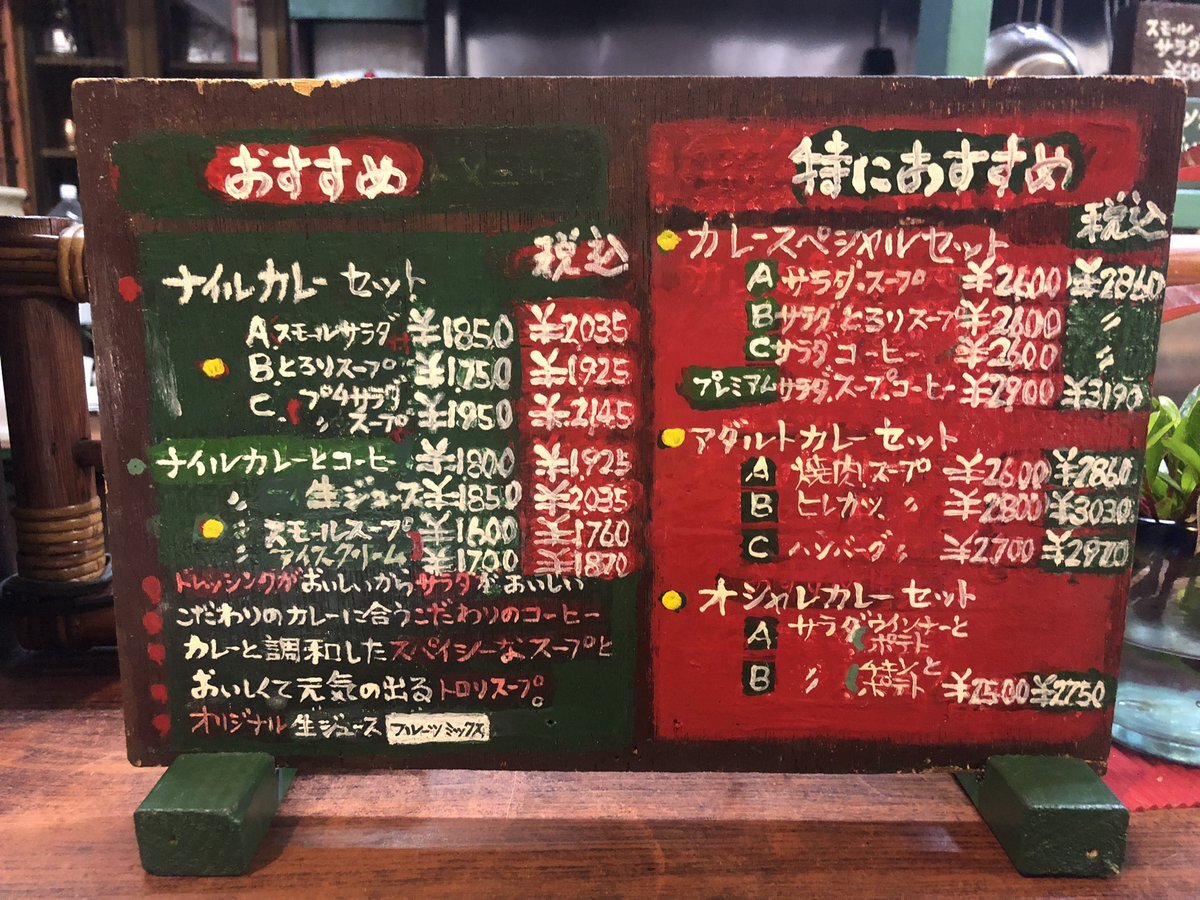 おすすめ
税込
ナイルカレーセット
A スモールサラダ ¥1850 ¥2035
B とろりスープ ¥1750 ¥1925
C プチサラダ
〃 スープ ¥1950 ¥2145
ナイルカレーとコーヒー ¥1800 ¥1925
〃 生ジュース ¥1850 ¥2035
〃 スモールスープ ¥1600 ¥1760
〃 アイスクリーム ¥1700 ¥1870
ドレッシングがおいしいからサラダがおいしい
こだわりのカレーに合うこだわりのコーヒー
カレーと調和したスパイシーなスープと
おいしくて元気の出るトロリスープ。
オリジナル生ジュース フルーツミックス
特におすすめ
税込
カレースペシャルセット
A サラダ・スープ ¥2600 ¥2860
B サラダ とろりスープ ¥2600 〃
C サラダ コーヒー ¥2600 〃
プレミアム サラダ、スープ、コーヒー ¥2900 ¥3190
アダルトカレーセット
A 焼肉スープ ¥2600 ¥2860
B ヒレカツ 〃 ¥2800 ¥3030
C ハンバーグ 〃 ¥2700 ¥2970
オシャレカレーセット
A サラダ ウインナーと
ポテト
B 〃 チキンと
ポテト ¥2500 ¥2750
スモール
サラダ